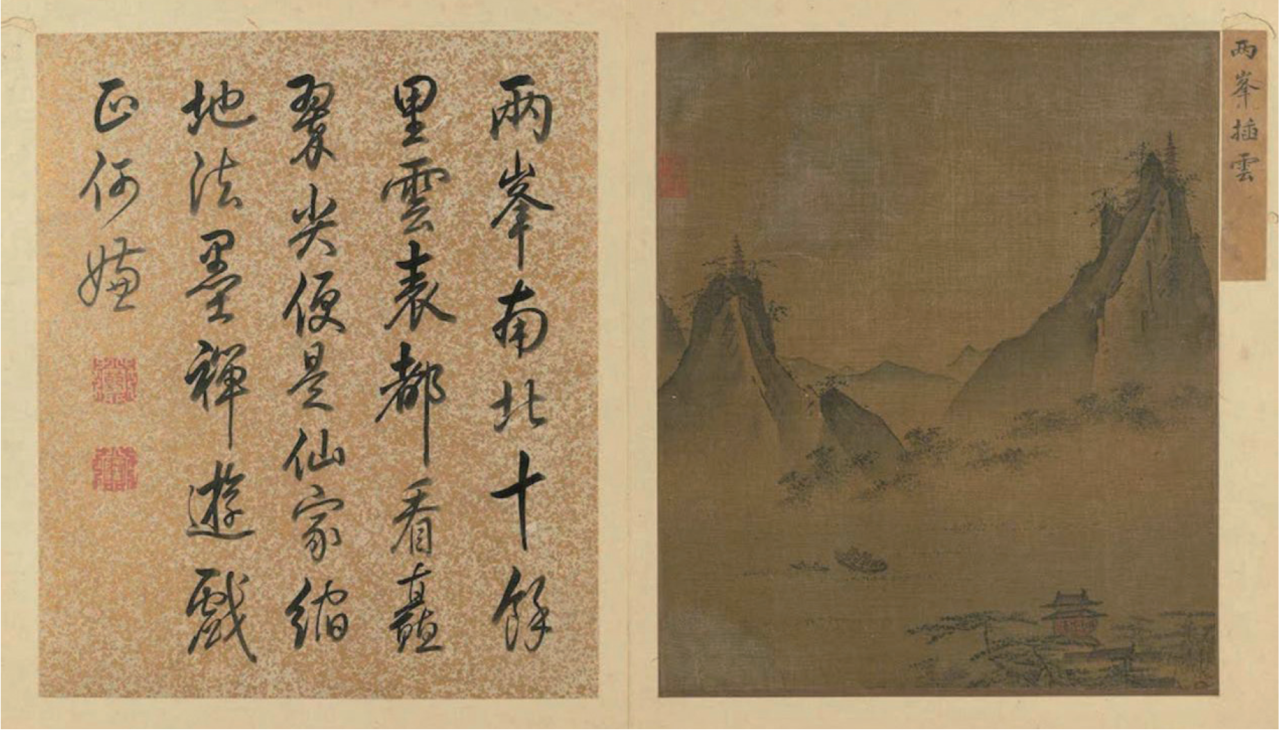 兩峯插雲
兩峯南北十餘
里雲表都看矗
翠尖便是仙家縮
地法墨禪遊戲
正何嫌